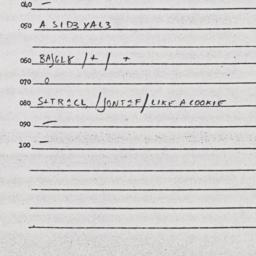 040 —
050 A SIDB YAL3
060 BAJGLY / + / +
070 0
080 S+TRZCL / JONTIF / LIKE A COOKIE
090 —
100 —